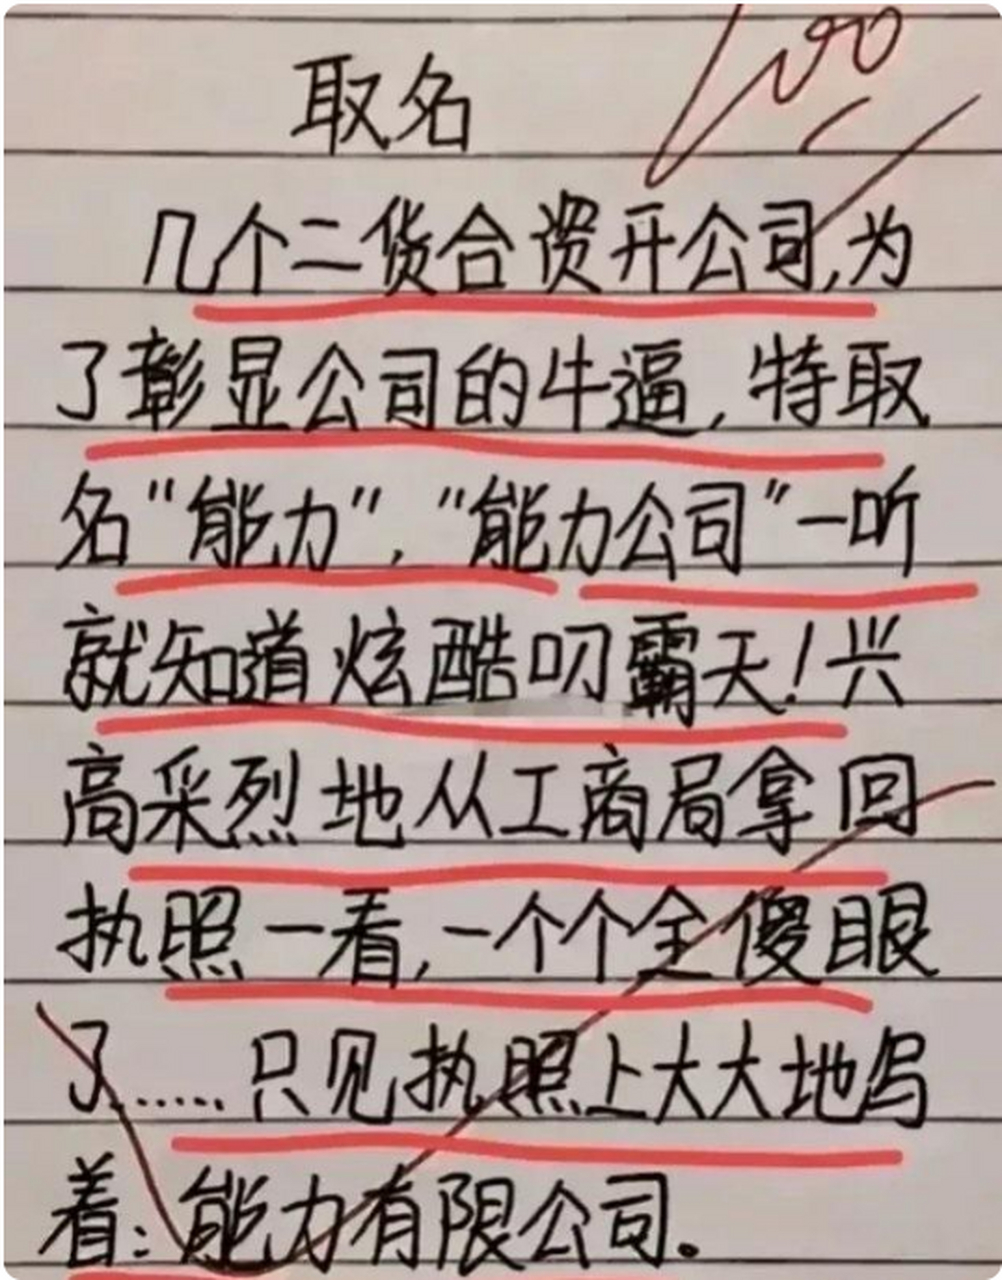 100
取名
几个二货合资开公司,为
了彰显公司的牛逼,特取
名“能力”,“能力公司”一听
就知道炫酷叨霸天!兴
高采烈地从工商局拿回
执照一看,一个个全傻眼
了……只见执照上大大地写
着:能力有限公司。